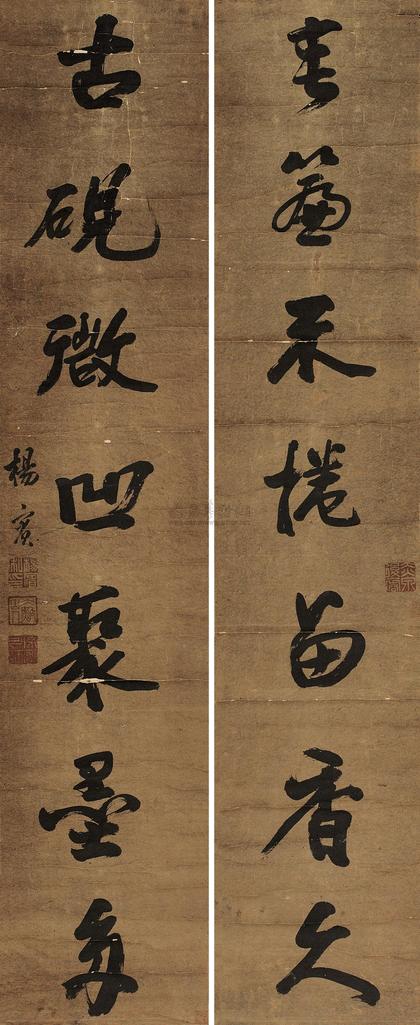 重簾不捲留香久
古硯微凹聚墨多
楊賓